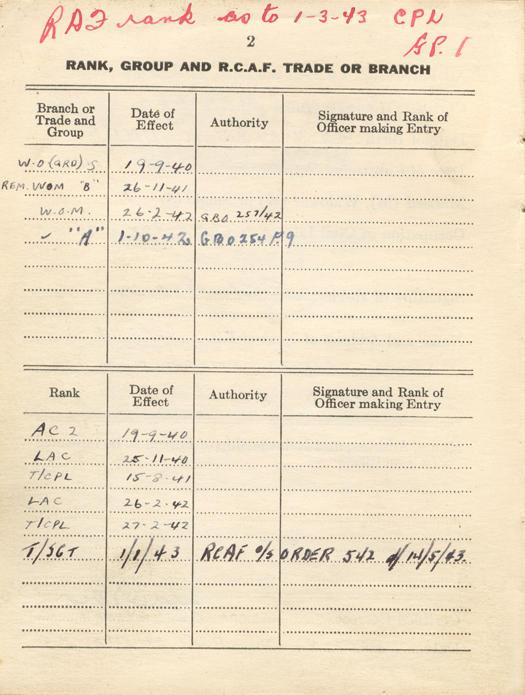 RAF rank as to 1-3-43 CPL
GP. 1
2
RANK, GROUP AND R.C.A.F. TRADE OR BRANCH
Branch or Trade and Group Date of Effect Authority Signature and Rank of Officer making Entry
W.O (GRD) S 19-9-40
REM. WOM "B" 26-11-41
W.O.M. 26-2-42 G.B.O 257/42
✓ "A" 1-10-42 GBO 254 P.9
Rank Date of Effect Authority Signature and Rank of Officer making Entry
AC 2 19-9-40
LAC 25-11-40
T/CPL 15-8-41
LAC 26-2-42
T/CPL 27-2-42
T/SGT 1/1/43 RCAF O/S ORDER 542 d/14/5/43.